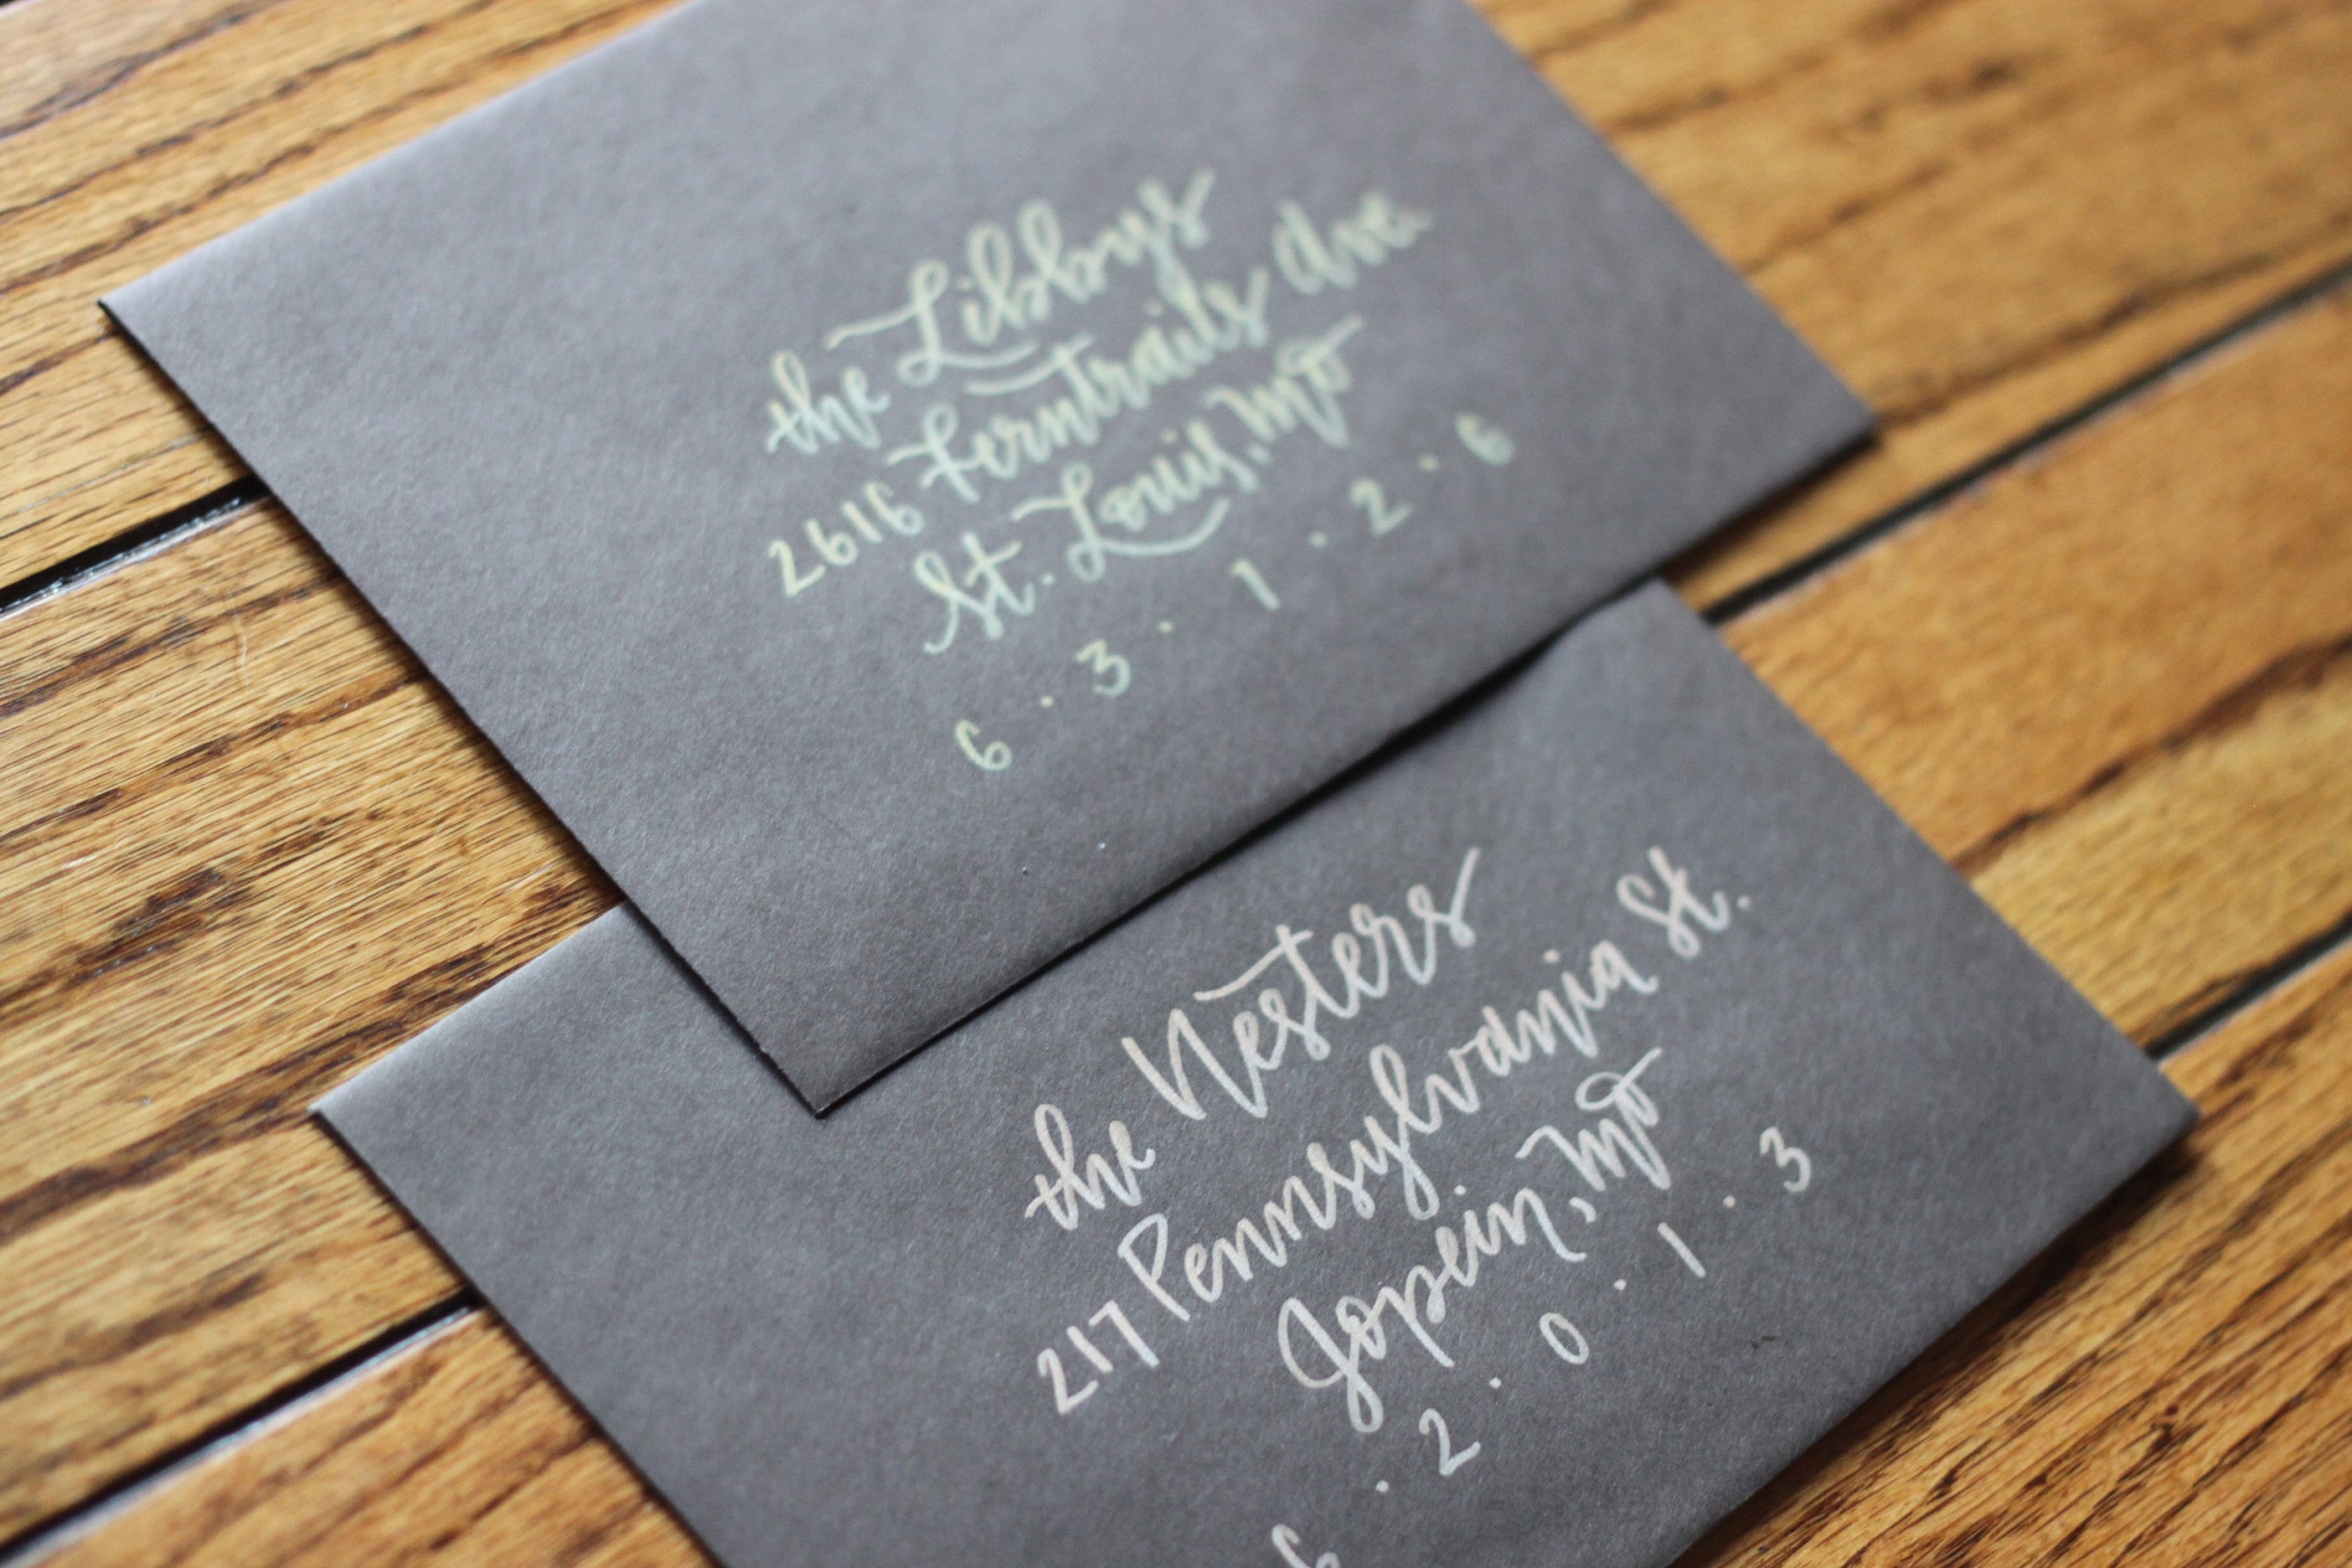 the Libbys
2616 Ferntrails Ave.
St. Louis, MO
6 · 3 · 1 · 2 · 6
the Nesters
217 Pennsylvania St.
Jopein, MO
6 · 2 · 0 · 1 · 3